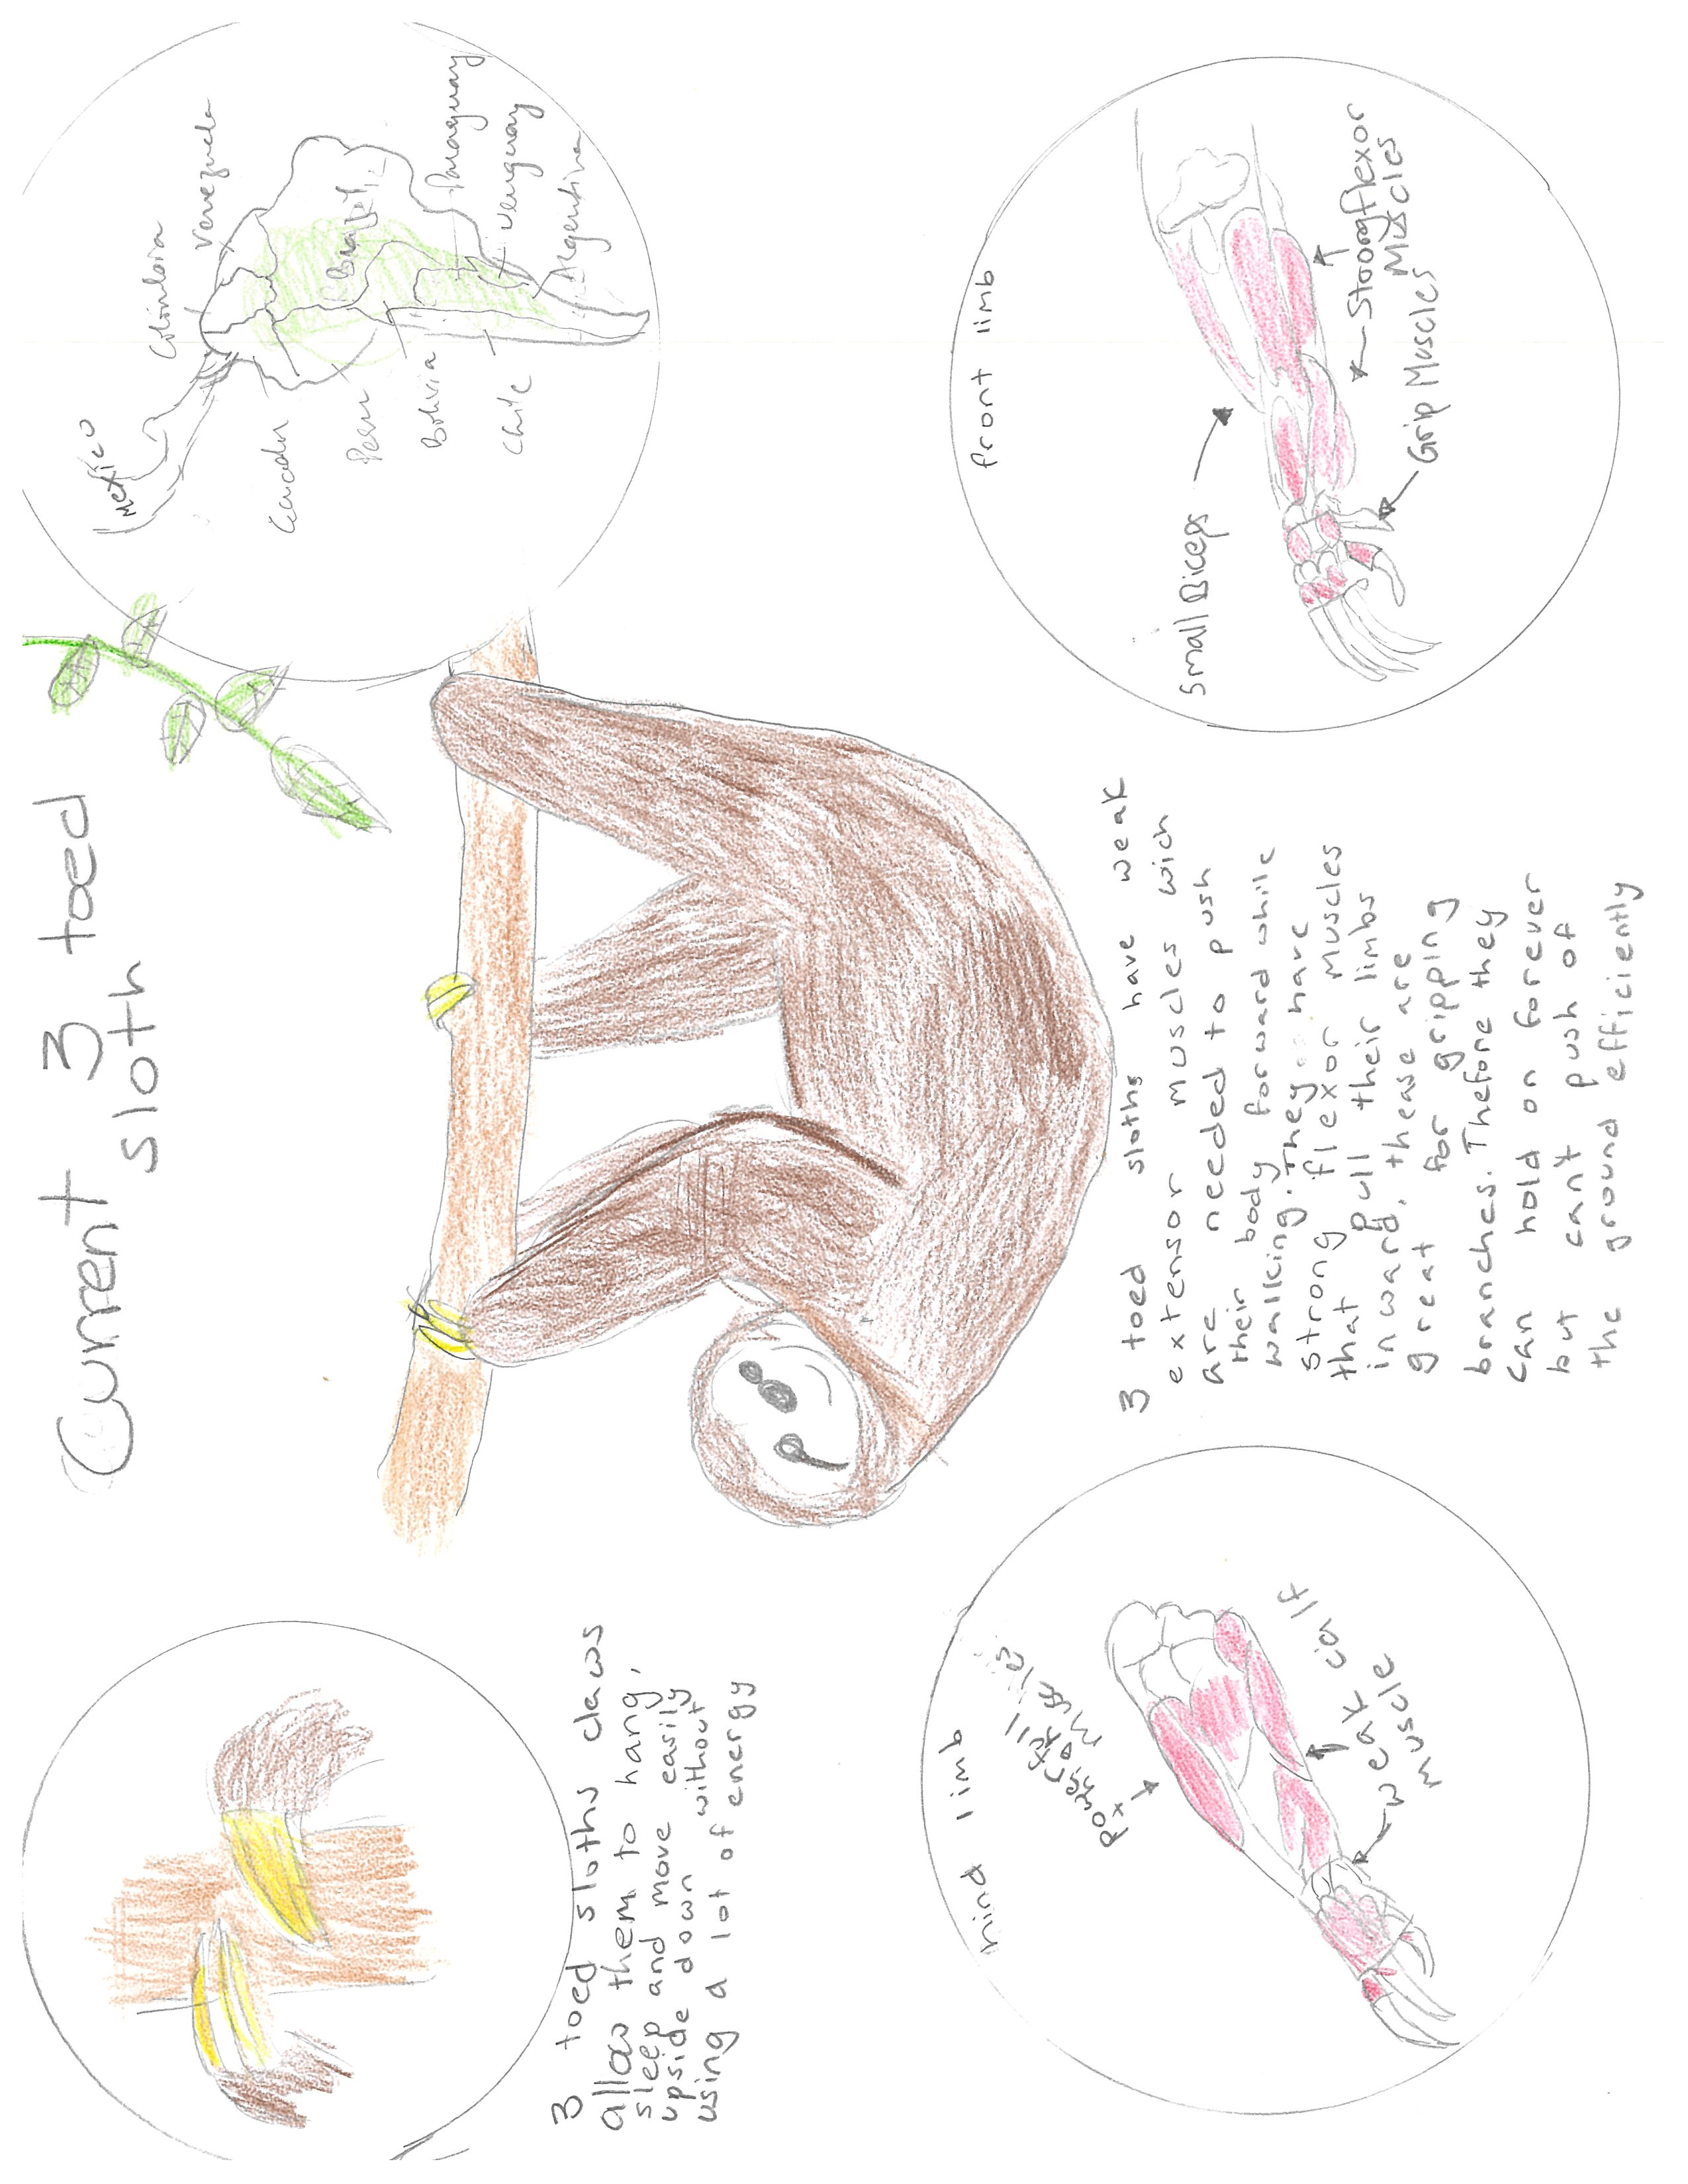 Current 3 toed
sloth
3 toed sloths claws
allow them to hang,
sleep and move easily
upside down without
using a lot of energy
Mexico
Colombia
Venezuela
Brazil
Paraguay
Argentina
Peru
Bolivia
Chile
hind limb
Powerfull
weak calf
muscle
3 toed sloths have weak
extensor muscles wich
are needed to push
their body forward while
walking. They have
strong flexor muscles
that pull their limbs
inward, thease are
great for gripping
branches. Thefore they
can hold on forever
but can't push of
the ground efficiently
front limb
small Biceps
Strong flexor
Muscles
Grip Muscles